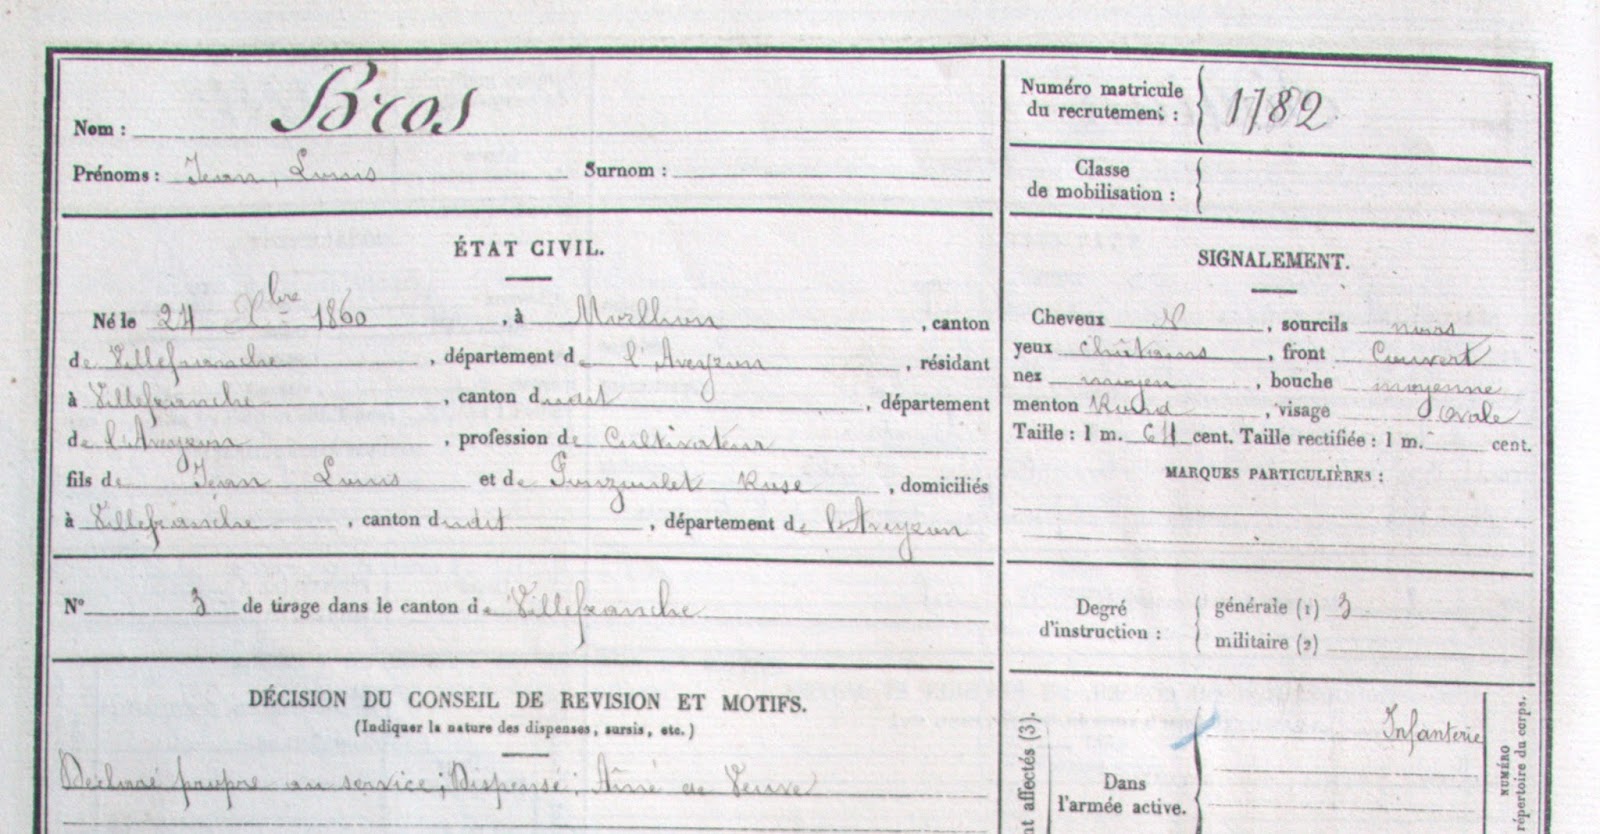 Nom : Bros
Prénoms : Jean, Louis Surnom :
Numéro matricule
du recrutement : 1782
Classe
de mobilisation :
ÉTAT CIVIL.
Né le 24 Xbre 1860, à Morlhon, canton
de Villefranche, département de l'Aveyron, résidant
à Villefranche, canton dudit, département
de l'Aveyron, profession de Cultivateur
fils de Jean Louis et de Rose, domiciliés
à Villefranche, canton dudit, département de l'Aveyron
N° 3 de tirage dans le canton de Villefranche
DÉCISION DU CONSEIL DE REVISION ET MOTIFS.
(Indiquer la nature des dispenses, sursis, etc.)
Déclaré propre au service; Dispensé; Aîné de Veuve
SIGNALEMENT.
Cheveux N, sourcils noirs
yeux châtains, front Couvert
nez moyen, bouche moyenne
menton Rond, visage ovale
Taille : 1 m. 64 cent. Taille rectifiée : 1 m. cent.
MARQUES PARTICULIÈRES :
Degré
d'instruction :
générale (1) 3
militaire (2)
nt affectés (3).
Dans
l'armée active.
Infanterie
NUMÉRO
répertoire du corps.